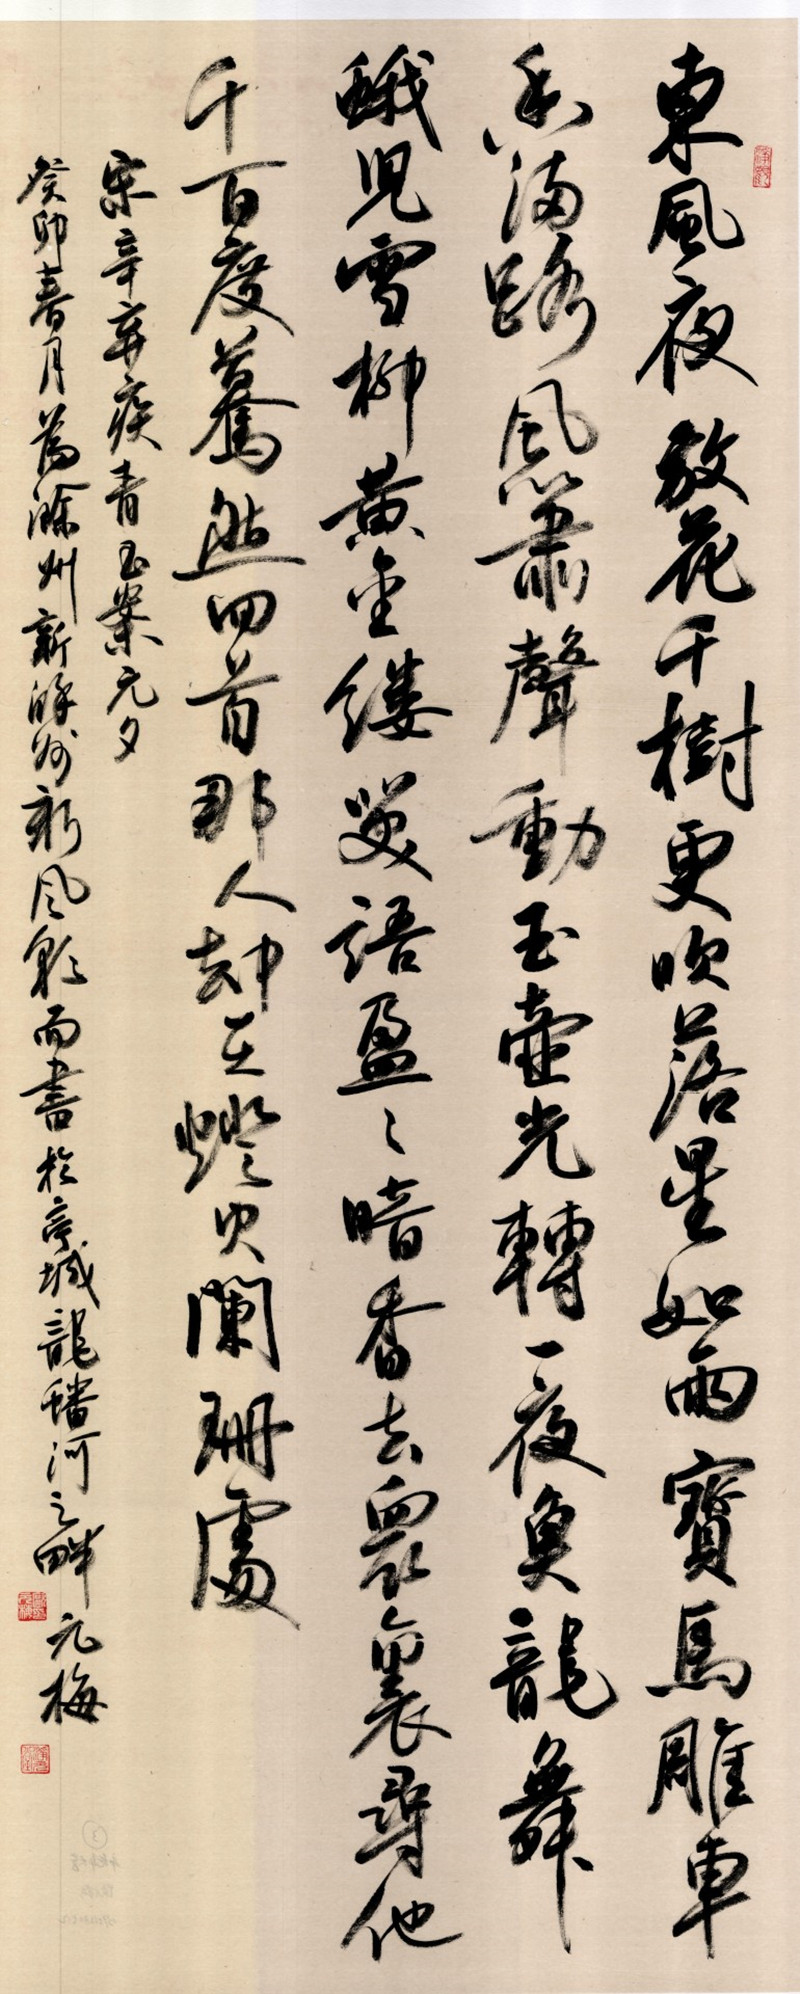 東風夜放花千樹更吹落星如雨寶馬雕車
香滿路風簫聲動玉壺光轉一夜魚龍舞
蛾兒雪柳黃金縷笑語盈々暗香去眾裏尋他
千百度驀然回首那人却在燈火闌珊處
宋辛弃疾青玉案元夕
癸卯春月為滁州新滁州新風彩而書於亭城龍蟠河之畔
元梅